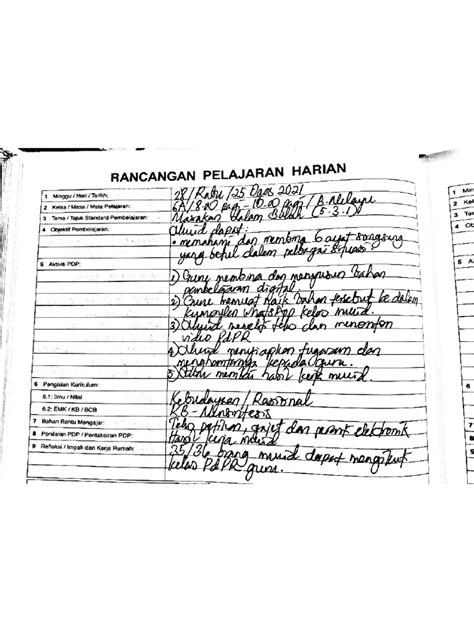 RANCANGAN PELAJARAN HARIAN
1 Minggu / Hari / Tarikh: 28 / Rabu / 25 Ogos 2021
2 Kelas / Masa / Mata Pelajaran: / 8.00 pagi - 10.00 pagi / B. Melayu
3 Tema / Tajuk Standard Pembelajaran: Masakan dalam Buluh (5.3.1)
4 Objektif Pembelajaran: Murid dapat:
• memahami dan membina 6 ayat songsang
yang betul dalam pelbagai situasi.
5 Aktiviti PDP: 1) Guru membina dan menyusun bahan
pembelajaran digital.
2) Guru memuat naik bahan tersebut ke dalam
kumpulan WhatsApp kelas murid.
3) Murid meneliti teks dan menonton
video PdPR
4) Murid menyiapkan tugasan dan
menghantarnya kepada guru.
5) hasil kerja murid.
6 Pengisian Kurikulum:
6.1: Ilmu / Nilai Kebudayaan / Rasional
6.2: EMK / KB / BCB KB - Mensintesis
7 Bahan Bantu Mengajar: Teks petikan, gajet dan peranti elektronik
8 Penilaian PDP / Pentaksiran PDP: Hasil kerja murid
9 Refleksi / Impak dan Kerja Rumah: 35/36 orang murid dapat mengikuti
kelas PdPR guru.